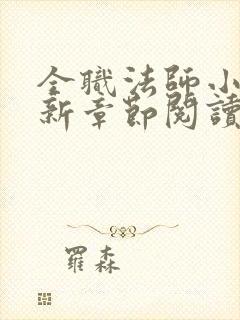 全職法師小
新章節閱讀
羅森